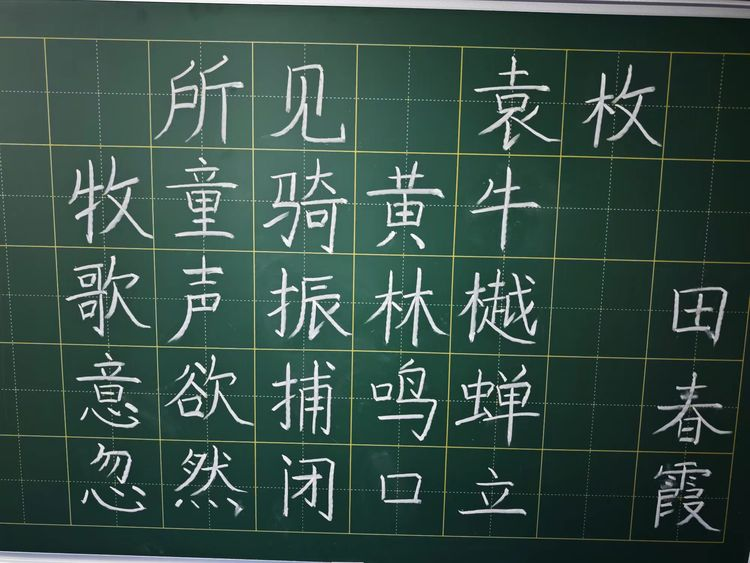 所见 袁枚
牧童骑黄牛
歌声振林樾
意欲捕鸣蝉
忽然闭口立
田春霞